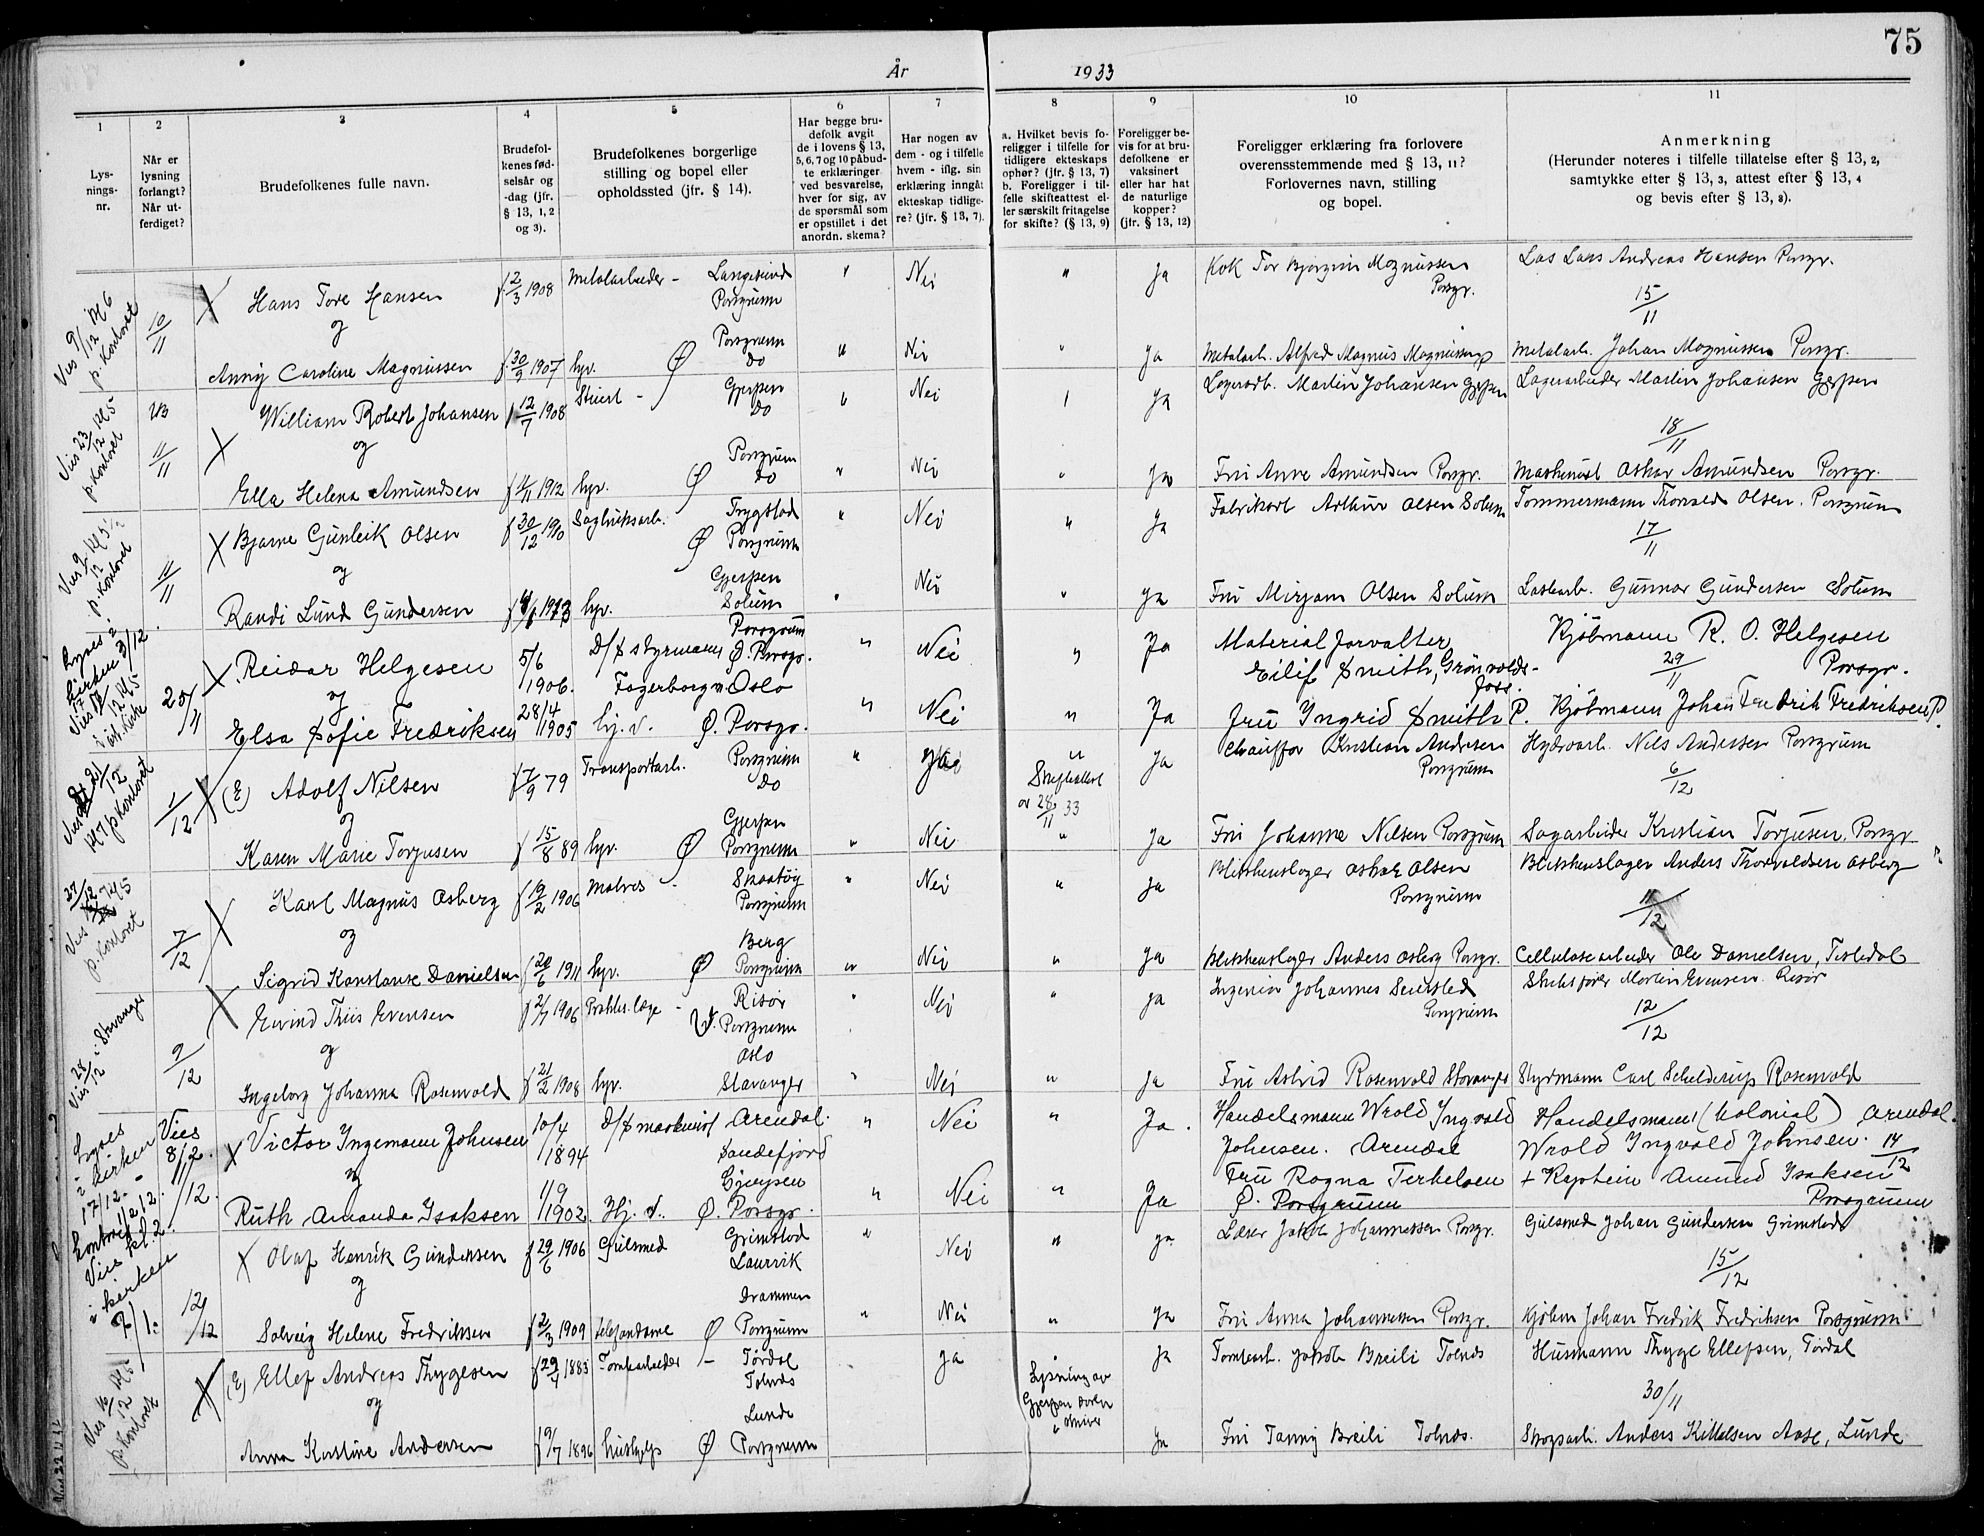 75
År 1933
1 2 3 4 5 6 7 8 9 10 11
Lysnings-nr.
Når er lysning forlangt? Når utferdiget?
Brudefolkenes fulle navn.
Brudefolkenes fødselsår og -dag (jfr. § 13, 1, 2 og 3).
Brudefolkenes borgerlige stilling og bopel eller opholdssted (jfr. § 14).
Har begge brudefolk avgit de i lovens § 13, 5, 6, 7 og 10 påbudte erklæringer ved besvarelse, hver for sig, av de spørsmål som er opstillet i det anordn. skema?
Har nogen av dem - og i tilfelle hvem - iflg. sin erklæring inngått ekteskap tidligere? (jfr. § 13, 7).
a. Hvilket bevis foreligger i tilfelle for tidligere ekteskaps ophør? (jfr. § 13, 7) b. Foreligger i tilfelle skifteattest eller særskilt fritagelse for skifte? (§ 13, 9)
Foreligger bevis for at brudefolkene er vaksinert eller har hat de naturlige kopper? (jfr. § 13, 12)
Foreligger erklæring fra forlovere overensstemmende med § 13, 11? Forlovernes navn, stilling og bopel.
Anmerkning (Herunder noteres i tilfelle tillatelse efter § 13, 2, samtykke efter § 13, 3, attest efter § 13, 4 og bevis efter § 13, 8).
Vies 9/12 kl 6 p. kontoret 10/11 X Hans Tore Hansen f. 2/3 1908 Metalarbeider - Langesund Porsgrunn " Nei " Ja Kok Tor Bjørgvin Magnussen Porsgr. Las Lars Andreas Hansen Porsgr. 15/11
og
Anny Caroline Magnussen f. 30/9 1907 hv. Ø Porsgrunn do " Nei " Ja Metalarb. Alfred Magnus Magnussen Metalarb. Johan Magnussen Porsgr.
Vies 23/12 kl 5 p. kontoret 11/11 X William Robert Johansen f 12/7 1908 Stuert - Gjerpen do " Nei " Ja Lagerarb. Martin Johansen Gjerpen Lagerarbeider Martin Johansen Gjerpen 18/11
og
Ella Helena Amundsen f 4/11 1912 hv. Ø Porsgrunn do " Nei " Ja Fru Anne Amundsen Porsgr. Maskinist Oskar Amundsen Porsgr.
Vies 9/12 kl 5 1/2 p. kontoret 11/11 X Bjarne Gunleik Olsen f 30/12 1910 Sagbruksarb. Trygstad Ø Porsgrunn " Nei " Ja Fabrikarb Arthur Olsen Solum Tømmermann Thorvald Olsen. Porsgrunn 17/11
og
Randi Lund Gundersen hv. Gjerpen Solum " Nei " Ja Fru Mirjam Olsen Solum Lastearb. Gunnar Gundersen Solum
Lyses i kirken 3/12 25/11 X Reidar Helgesen 5/6 1906. D/S styrmann Porsgrunn Ø. Porsgr. " Nei " Ja Material forvalter Eilif Smith, Kjøbmann R. O. Helgesen 29/11 Porsgr.
og Fagerborg v. Oslo
Elsa Sofie Fredriksen 28/4 1905 hj. d. Ø. Porsgr. " Nei " Ja Fru Ingrid Smith P. Kjøbmann Johan Fredrik Fredriksen P.
Vies 21/12 kl 7 p kontoret 1/12 X (E) Adolf Nilsen f 7/9 79 Transportarb. Porsgrunn do " Ja Skifteattest av 28/11 33 Ja Chauffør Kristian Andersen Porsgrunn Hydroarb. Nils Andersen Porsgrunn 6/12
og
Karen Marie Torjusen f 15/8 89 hv. Ø Gjerpen Porsgrunn " Nei " Ja Fru Johanne Nilsen Porsgrunn Sagarbeider Kristian Torjusen. Porsgr
Vies kl 5 p. kontoret 7/12 X Karl Magnus Osberg f 19/2 1906 Matros - Skaatøy Porsgrunn " Nei " Ja Blikkenslager Oskar Olsen Porsgrunn Blikkenslager Anders Thorvaldsen Osberg 11/12
og
Sigrid Konstanse Danielsen f 20/6 1911 hv. Ø Berg Porsgrunn " Nei " Ja Blikkenslager Anders Osberg Porsgr. Cellulosearbeider Ole Danielsen, Tistedal
Vies 28/12 i Stavanger 9/12 X Eivind Thiis Evensen f 2/7 1906 Prakt. læge - Risør Porsgrunn " Nei " Ja Ingeniør Johannes Seiersted Porsgrunn Skibsfører Morten Evensen. Risør 12/12
og
Ingeborg Johanna Rosenvold f 21/2 1908 hv. Oslo Stavanger " Nei " Ja Fru Astrid Rosenvold Stavanger Styrmann Carl Schelderup Rosenvold
Lyses i kirken 17/12. Vies 8/2. X Victor Ingemann Johnsen 10/4 1894 D/S maskinist Arendal. Sandefjord " Nei " Ja. Handelsmann Wrold Ingvald Johnsen. Arendal Handelsmann (kolonial) Arendal. Wrold Ingvald Johnsen. 14/12
og
11/12. Ruth Amanda Isaksen 1/9 1902. Hj. d. Gjerpen Ø. Porsgr. " Nei " Ja Fru Ragna Terkelsen Ø. Porsgrunn + Kaptein Amund Isaksen Porsgrunn
Vies kl 2. i kirken 12/12 X Olaf Henrik Gundersen f 29/6 1906 Gulsmed Grimstad Laurvik " Nei " Ja Lærer Jakob Johannessen Porsgr. Gulsmed Johan Gundersen Grimstad 15/12
og
Solveig Helene Fredriksen f 2/3 1909 telefondame Ø Drammen Porsgrunn " Nei " Ja Fru Anna Johannessen Porsgr. Kjøbm Johan Fredrik Fredriksen Porsgrunn
Vies 16/12 kl 5 p. kontoret X (E) Ellef Andreas Thygesen f 29/4 1883 Tomtearbeider - Tørdal Tolnes Ja Lysning av Gjerpen Ja Tomtearb. Jakob Breili Tolnes Husmann Thyge Ellefsen, Tørdal 30/11
og
Anna Kristine Andersen f 19/7 1896 hushjelp Ø Lunde Porsgrunn Ja Fru Tanny Breili Tolnes. Skogsarb. Anders Kittelsen Aase, Lunde